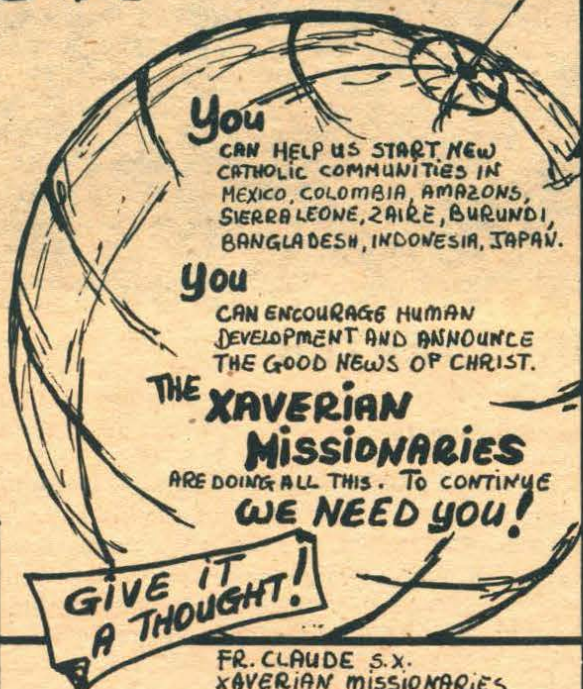 You
CAN HELP US START NEW
CATHOLIC COMMUNITIES IN
MEXICO, COLOMBIA, AMAZONS,
SIERRA LEONE, ZAIRE, BURUNDI,
BANGLADESH, INDONESIA, JAPAN.
you
CAN ENCOURAGE HUMAN
DEVELOPMENT AND ANNOUNCE
THE GOOD NEWS OF CHRIST.
THE XAVERiAN
MissiONARiES
ARE DOING ALL THIS. TO CONTINUE
WE NEED you!
GIVE IT
A THOUGHT!
FR. CLAUDE S.X.
XAVERIAN MISSIONARIES